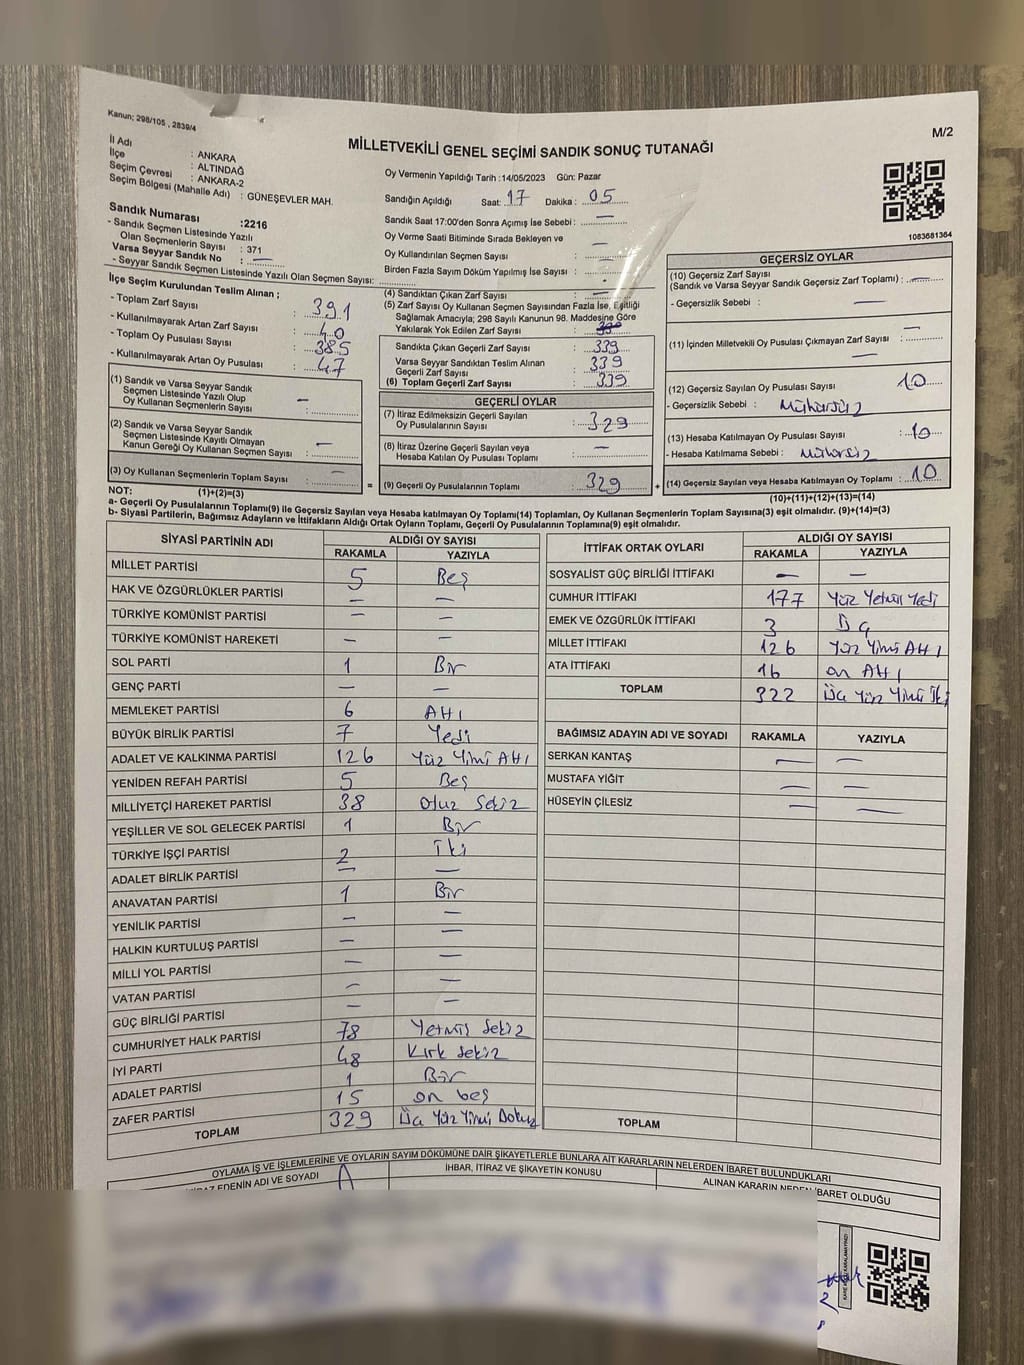 Kanun; 298/105 , 2839/4
M/2
MİLLETVEKİLİ GENEL SEÇİMİ SANDIK SONUÇ TUTANAĞI
İl Adı : ANKARA
İlçe : ALTINDAĞ
Seçim Çevresi : ANKARA-2
Seçim Bölgesi (Mahalle Adı) : GÜNEŞEVLER MAH.
Oy Vermenin Yapıldığı Tarih :14/05/2023 Gün: Pazar
Sandığın Açıldığı Saat: 17 Dakika : 05
Sandık Saat 17:00'den Sonra Açımış İse Sebebi : —
Oy Verme Saati Bitiminde Sırada Bekleyen ve
Oy Kullandırılan Seçmen Sayısı : —
Birden Fazla Sayım Döküm Yapılmış İse Sayısı : —
1083681364
Sandık Numarası :2216
- Sandık Seçmen Listesinde Yazılı
Olan Seçmenlerin Sayısı : 371
Varsa Seyyar Sandık No : —
- Seyyar Sandık Seçmen Listesinde Yazılı Olan Seçmen Sayısı:
İlçe Seçim Kurulundan Teslim Alınan ;
- Toplam Zarf Sayısı : 391
- Kullanılmayarak Artan Zarf Sayısı : 40
- Toplam Oy Pusulası Sayısı : 385
- Kullanılmayarak Artan Oy Pusulası : 47
(1) Sandık ve Varsa Seyyar Sandık
Seçmen Listesinde Yazılı Olup
Oy Kullanan Seçmenlerin Sayısı : —
(2) Sandık ve Varsa Seyyar Sandık
Seçmen Listesinde Kayıtlı Olmayan
Kanun Gereği Oy Kullanan Seçmen Sayısı : —
(3) Oy Kullanan Seçmenlerin Toplam Sayısı : —
(1)+(2)=(3)
(4) Sandıktan Çıkan Zarf Sayısı : —
(5) Zarf Sayısı Oy Kullanan Seçmen Sayısından Fazla İse, Eşitliği
Sağlamak Amacıyla; 298 Sayılı Kanunun 98. Maddesine Göre
Yakılarak Yok Edilen Zarf Sayısı :
Sandıkta Çıkan Geçerli Zarf Sayısı : 339
Varsa Seyyar Sandıktan Teslim Alınan
Geçerli Zarf Sayısı : 339
(6) Toplam Geçerli Zarf Sayısı : 339
GEÇERLİ OYLAR
(7) İtiraz Edilmeksizin Geçerli Sayılan
Oy Pusulalarının Sayısı : 329
(8) İtiraz Üzerine Geçerli Sayılan veya
Hesaba Katılan Oy Pusulası Toplamı : —
= (9) Geçerli Oy Pusulalarının Toplamı : 329 +
GEÇERSİZ OYLAR
(10) Geçersiz Zarf Sayısı
(Sandık ve Varsa Seyyar Sandık Geçersiz Zarf Toplamı) : —
- Geçersizlik Sebebi : —
(11) İçinden Milletvekili Oy Pusulası Çıkmayan Zarf Sayısı : —
—
(12) Geçersiz Sayılan Oy Pusulası Sayısı 10
- Geçersizlik Sebebi : Mühürsüz
(13) Hesaba Katılmayan Oy Pusulası Sayısı : 10
- Hesaba Katılmama Sebebi : Mühürsüz
(14) Geçersiz Sayılan veya Hesaba Katılmayan Oy Toplamı : 10
(10)+(11)+(12)+(13)=(14)
NOT:
a- Geçerli Oy Pusulalarının Toplamı(9) ile Geçersiz Sayılan veya Hesaba katılmayan Oy Toplamı(14) Toplamları, Oy Kullanan Seçmenlerin Toplam Sayısına(3) eşit olmalıdır. (9)+(14)=(3)
b- Siyasi Partilerin, Bağımsız Adayların ve İttifakların Aldığı Ortak Oyların Toplamı, Geçerli Oy Pusulalarının Toplamına(9) eşit olmalıdır.
SİYASİ PARTİNİN ADI ALDIĞI OY SAYISI
RAKAMLA YAZIYLA
MİLLET PARTİSİ 5 Beş
HAK VE ÖZGÜRLÜKLER PARTİSİ — —
TÜRKİYE KOMÜNİST PARTİSİ — —
TÜRKİYE KOMÜNİST HAREKETİ — —
SOL PARTİ 1 Bir
GENÇ PARTİ — —
MEMLEKET PARTİSİ 6 Altı
BÜYÜK BİRLİK PARTİSİ 7 Yedi
ADALET VE KALKINMA PARTİSİ 126 Yüz Yirmi Altı
YENİDEN REFAH PARTİSİ 5 Beş
MİLLİYETÇİ HAREKET PARTİSİ 38 Otuz Sekiz
YEŞİLLER VE SOL GELECEK PARTİSİ 1 Bir
TÜRKİYE İŞÇİ PARTİSİ 2 İki
ADALET BİRLİK PARTİSİ — —
ANAVATAN PARTİSİ 1 Bir
YENİLİK PARTİSİ — —
HALKIN KURTULUŞ PARTİSİ — —
MİLLİ YOL PARTİSİ — —
VATAN PARTİSİ — —
GÜÇ BİRLİĞİ PARTİSİ — —
CUMHURİYET HALK PARTİSİ 78 Yetmiş Sekiz
İYİ PARTİ 48 Kırk Sekiz
ADALET PARTİSİ 1 Bir
ZAFER PARTİSİ 15 on beş
TOPLAM 329 Üç Yüz Yirmi Dokuz
İTTİFAK ORTAK OYLARI ALDIĞI OY SAYISI
RAKAMLA YAZIYLA
SOSYALİST GÜÇ BİRLİĞİ İTTİFAKI — —
CUMHUR İTTİFAKI 177 Yüz Yetmiş Yedi
EMEK VE ÖZGÜRLÜK İTTİFAKI 3 Üç
MİLLET İTTİFAKI 126 Yüz Yirmi Altı
ATA İTTİFAKI 16 on Altı
TOPLAM 322 Üç Yüz Yirmi İki
BAĞIMSIZ ADAYIN ADI VE SOYADI RAKAMLA YAZIYLA
SERKAN KANTAŞ — —
MUSTAFA YİĞİT — —
HÜSEYİN ÇİLESİZ — —
TOPLAM
OYLAMA İŞ VE İŞLEMLERİNE VE OYLARIN SAYIM DÖKÜMÜNE DAİR ŞİKAYETLERLE BUNLARA AİT KARARLARIN NELERDEN İBARET BULUNDUKLARI
EDENİN ADI VE SOYADI İHBAR, İTİRAZ VE ŞİKAYETİN KONUSU ALINAN KARARIN NEDEN İBARET OLDUĞU